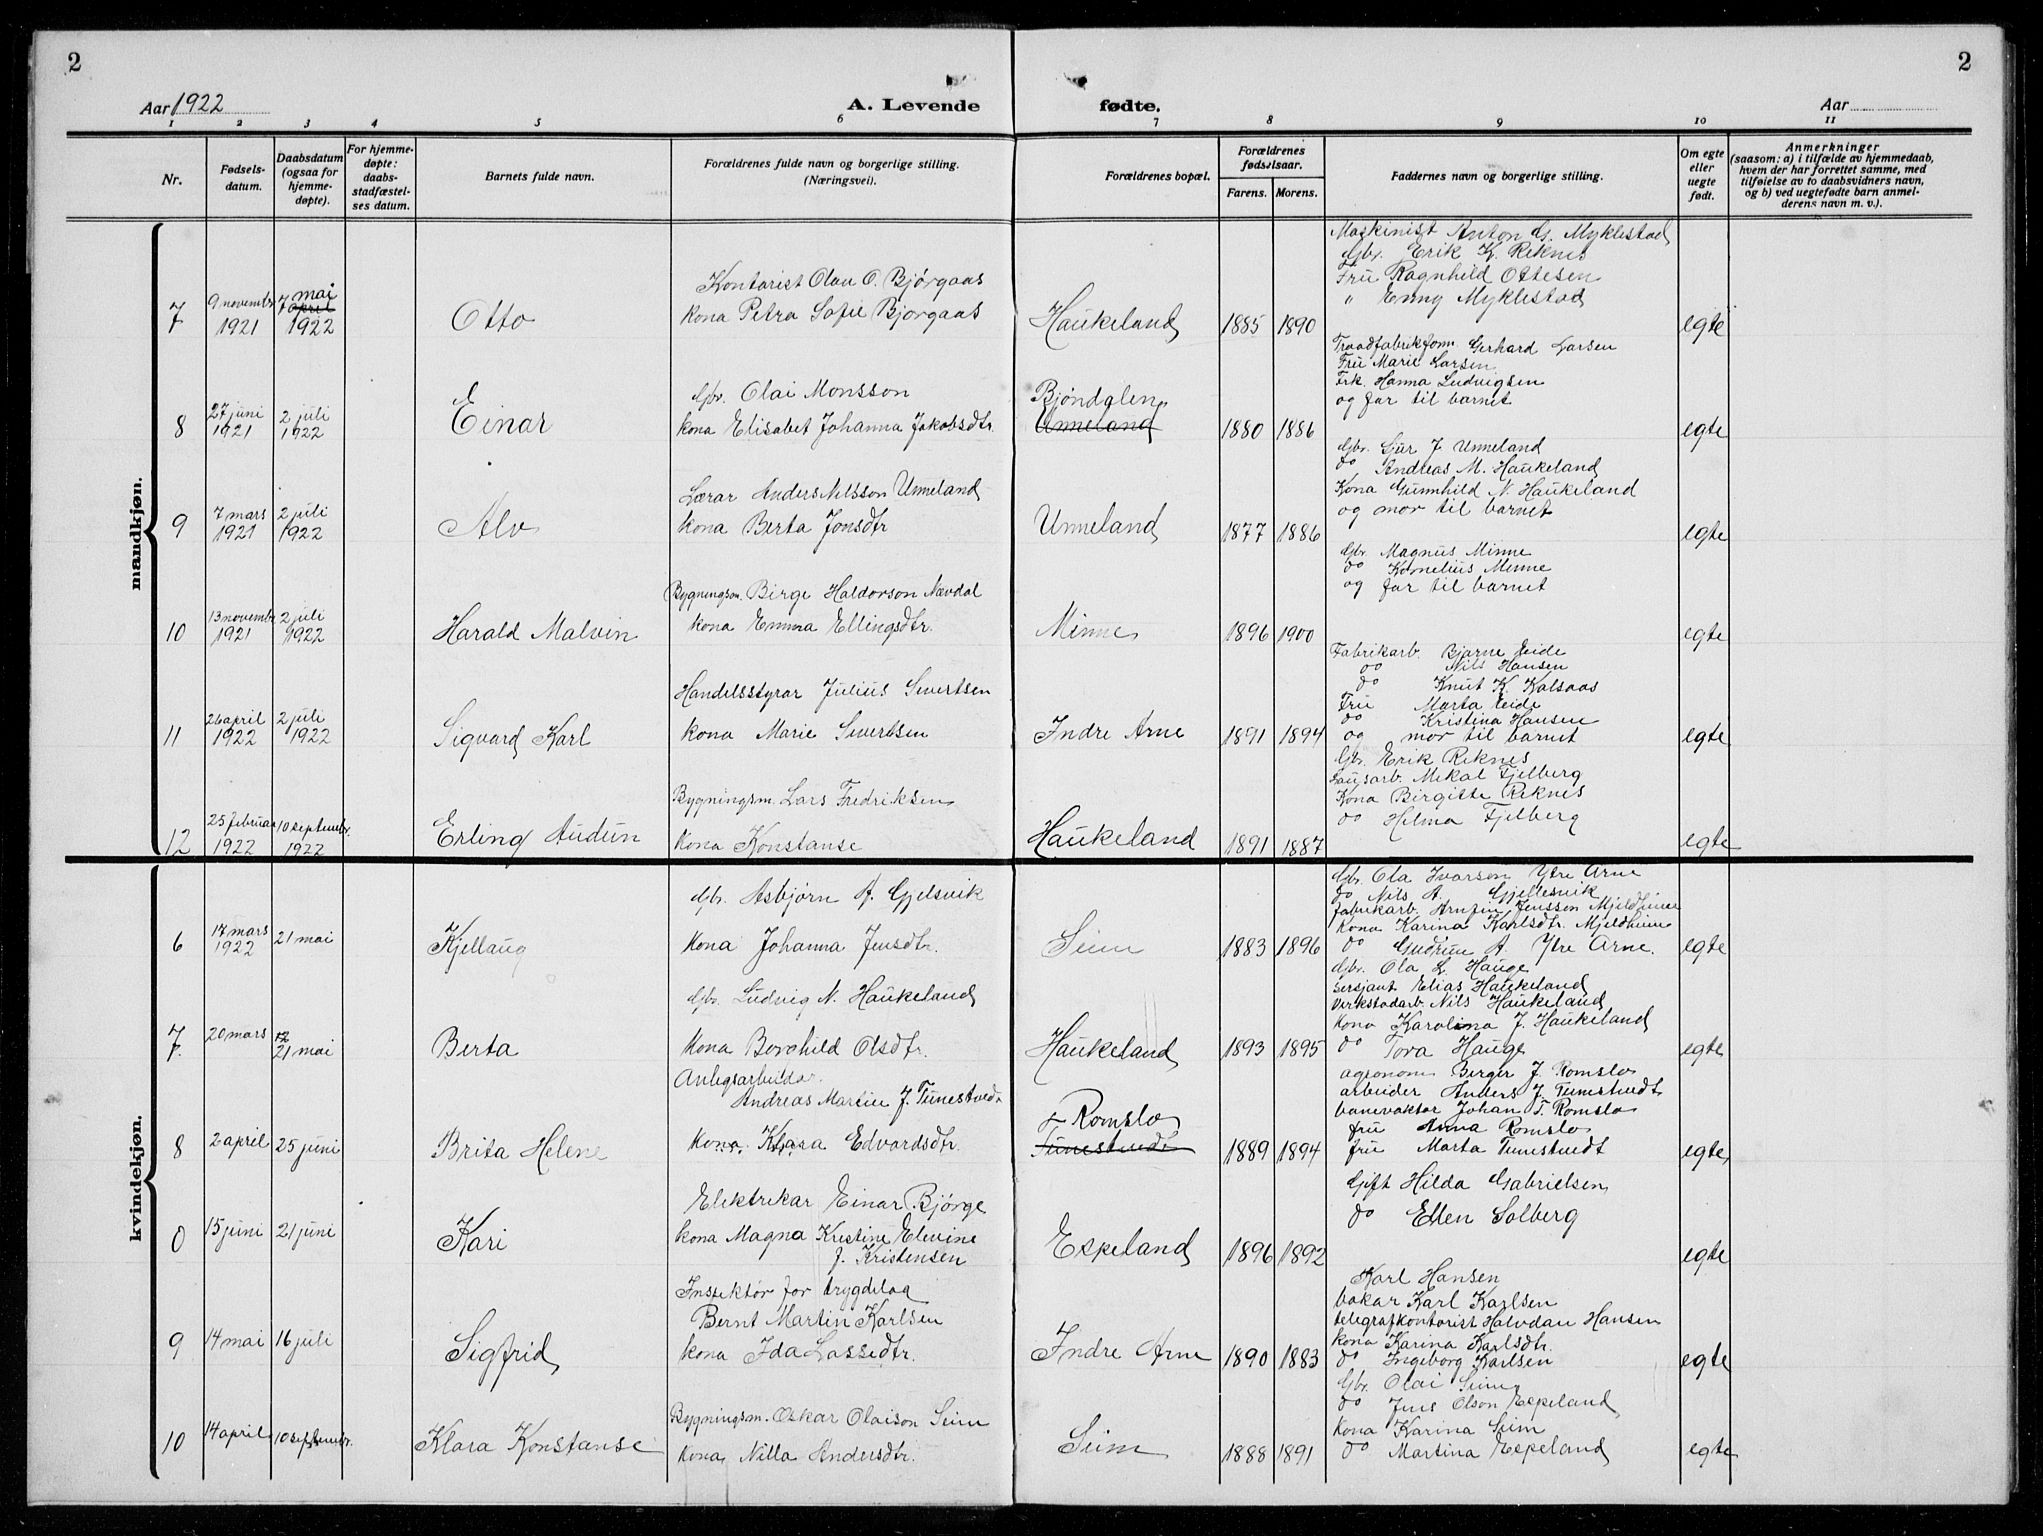 2
2
Aar 1922
A. Levende
fødte.
Aar
1 2 3 4 5 6 7 8 9 10 11
Nr.
Fødsels-
datum.
Daabsdatum
(ogsaa for
hjemme-
døpte).
For hjemme-
døpte:
daabs-
stadfæstel-
ses datum.
Barnets fulde navn.
Forældrenes fulde navn og borgerlige stilling.
(Næringsvei).
Forældrenes bopæl.
Forældrenes
fødselsaar.
Farens. Morens.
Faddernes navn og borgerlige stilling.
Om egte
eller
uegte
født.
Anmerkninger
(saasom: a) i tilfælde av hjemmedaab,
hvem der har forrettet samme, med
tilføielse av to daabsvidners navn,
og b) ved uegtefødte barn anmel-
derens navn m. v.).
mandkjøn.
7
9 novembr
1921
7 april mai
1922
Otto
Kontorist Olav O. Bjørgaas
kona Petra Sofie Bjørgaas
Haukeland
1885 1890
Maskinist Anton G. Myklestad
Gbr. Erik K. Reknes
Fru Ragnhild Ottesen
" Enny Myklestad
egte
8
27 juni
1921
2 juli
1922
Einar
Gbr. Olai Monsson
kona Elisabet Johanna Jakobsdtr.
Bjøndalen
Unneland
1880 1886
Traadfabrikform. Gerhard Larsen
Fru Marie Larsen
Frk. Hanna Ludvigsen
og far til barnet
egte
9
7 mars
1921
2 juli
1922
Alv
Lærar Anders Nilsson Unneland
kona Berta Jonsdtr
Unneland
1877 1886
Gbr. Sjur J Unneland
do Andreas M. Haukeland
Kona Gunnhild N. Haukeland
og mor til barnet
egte
10
13 novembr
1921
2 juli
1922
Harald Malvin
Bygningsm. Birge Haldorson Nævdal
kona Emma Ellingsdtr.
Minne
1896 1900
Gbr. Magnus Minne
do Kornelius Minne
og far til barnet
egte
11
26 april
1922
2 juli
1922
Sigvard Karl
Handelsstyrar Julius Sivertsen
kona Marie Sivertsen
Indre Arne
1891 1894
Fabrikarb. Bjarne Eide
do Nils Hansen
do Knut K. Kalsaas
Fru Marta Eide
do Kristina Hansen
og mor til barnet
egte
12
25 februar
1922
10 septembr.
1922
Erling Audun
Bygningsm. Lars Fredriksen
kona Konstanse
Haukeland
1891 1887
Gbr. Erik Reknes
Lausarb. Mikal Fjelberg
Kona Birgitte Reknes
do Helma Fjelberg
egte
kvindekjøn.
6
17 mars
1922
21 mai
Kjellaug
Gbr. Asbjørn A. Gjelsvik
kona Johanna Jensdtr.
Seim
1883 1896
Gbr. Ola Ivarson Ytre Arne
do Nils A. Gjellesvik
fabrikarb. Arnfinn Jensson Mjeldheim
kona Karina Karlsdtr. Mjeldheim
do Gudrun A. Ytre Arne.
egte
7
20 mars
21 mai
Berta
Gbr. Ludvig N. Haukeland
kona Borghild Olsdtr.
Haukeland
1893 1895
Gbr. Ola L. Hauge
Sersjant Elias Haukeland
Verkstadarb. Nils Haukeland
kona Karolina J. Haukeland
do Tora Hauge
egte
8
2 april
25 juni
Brita Helene
Anlegsarbeidar.
Andreas Martin J. Tunestvedt
kona Klara Edvardsdtr.
Romslo
Tunestvedt
1889 1894
agronom Berger J. Romslo
arbeider Anders J. Tunestvedt
banevaktar Johan T. Romslo
fru Anna Romslo
fru Marta Tunestvedt
egte
0
15 juni
21 juni
Kari
Elektrikar Einar Bjørge
kona Magna Kristine Elevine
J. Kristensen
Espeland
1896 1892
Gift Hilda Gabrielsen
do Ellen Solberg
egte
9
14 mai
16 juli
Sigfrid
Inspektør for trygdelag
Bernt Martin Karlsen
kona Ida Lassedtr.
Indre Arne
1890 1883
Karl Hansen
bakar Karl Karlsen
telegrafkontorist Halvdan Hansen
kona Karina Karlsdtr.
do Ingeborg Karlsen
egte
10
14 april
10 septembr.
Klara Konstanse
Bygningsm. Oskar Olaison Seim
kona Nilla Andersdtr.
Seim
1888 1891
Gbr. Olai Seim
do Jens Olson Espeland
kona Karina Seim
do Martina Espeland
egte